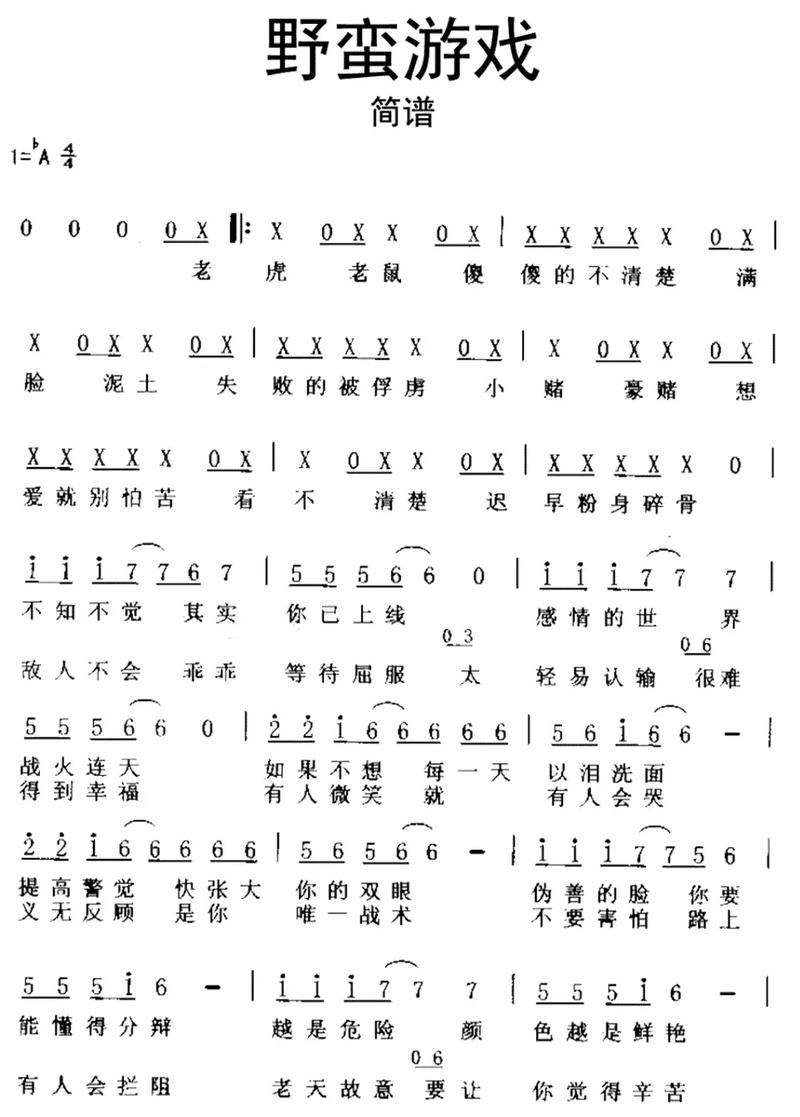 野蛮游戏
简谱
1=♭A 4/4
0 0 0 0 X ‖: X 0 X X 0 X | X X X X X 0 X |
老 虎 老 鼠 傻 傻 的 不 清 楚 满
X 0 X X 0 X | X X X X X 0 X | X 0 X X 0 X |
脸 泥 土 失 败 的 被 俘 虏 小 赌 豪 赌 想
X X X X X 0 X | X 0 X X 0 X | X X X X X 0 |
爱 就 别 怕 苦 看 不 清 楚 迟 早 粉 身 碎 骨
i i i 7 7 6 7 | 5 5 5 6 6 0 | i i i 7 7 7 |
不 知 不 觉 其 实 你 已 上 线 感 情 的 世 界
0 3 0 6
敌 人 不 会 乖 乖 等 待 屈 服 太 轻 易 认 输 很 难
5 5 5 6 6 0 | 2̇ 2̇ i 6 6 6 6 6 | 5 6 i 6 6 — |
战 火 连 天 如 果 不 想 每 一 天 以 泪 洗 面
得 到 幸 福 有 人 微 笑 就 有 人 会 哭
2̇ 2̇ i 6 6 6 6 6 | 5 6 5 6 6 — | i i i 7 7 5 6 |
提 高 警 觉 快 张 大 你 的 双 眼 伪 善 的 脸 你 要
义 无 反 顾 是 你 唯 一 战 术 不 要 害 怕 路 上
5 5 5 i 6 — | i i i 7 7 7 | 5 5 5 i 6 — |
能 懂 得 分 辩 越 是 危 险 颜 色 越 是 鲜 艳
0 6
有 人 会 拦 阻 老 天 故 意 要 让 你 觉 得 辛 苦